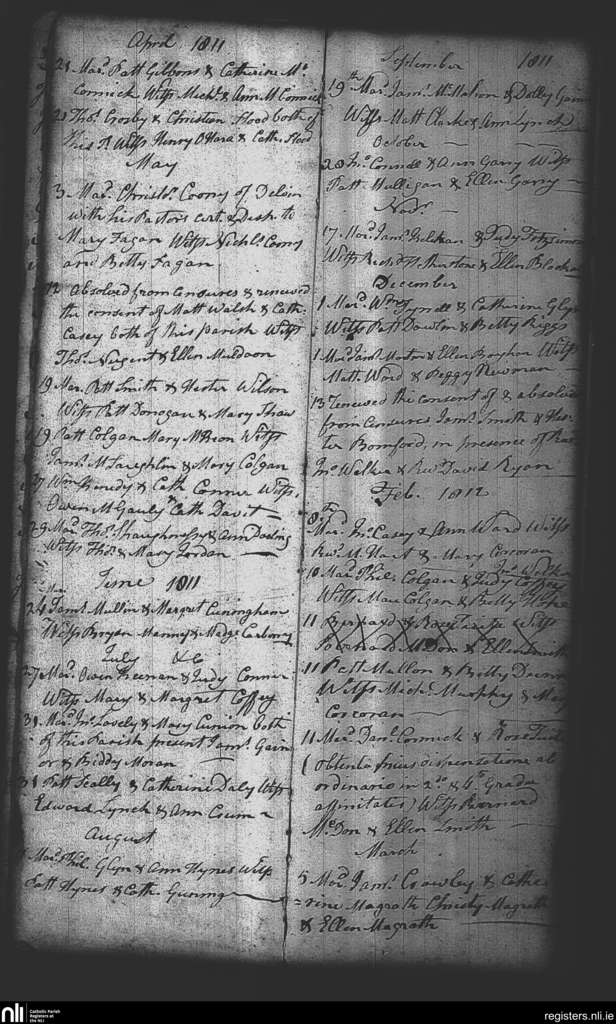 April 1811
21 Mar.d Patt Gibbons & Catherine Mc
Cormick Wittss Mich.l & Ann McCormick
21 Tho.s Crosby & Christian Flood both of
this P. Wittss Henry O'Hara & Cath. Flood
May
3 Mar.d Christ.r Coony of Delvin
with his Pastors cert. & Desh to
Mary Fagan Wittss Nichl.s Coony
and Betty Fagan
12 Absolved from Censures & renewed
the consent of Matt Walsh & Cath.
Casey both of this parish Wittss
Tho.s Nugent & Ellen Muldoon
19 Mar. Patt Smith & Hester Wilson
Wittss Patt Donogan & Mary Shaw
19 Patt Colgan Mary McKeon Wittss
Jam.s McLaughlin & Mary Colgan
27 Wm Kenedy & Cath Connor Wittss
Owen McGauly & Cath Davit
29 Mar.d Tho.s Shaughnessy & Ann Darling
Wittss Tho.s & Mary Jordan
June 1811
24 Mar. Jam.s Mullin & Margret Cuningham
Wittss Bryan Manny & Madge Carbery
July &c
27 Mar.d Owen Keenan & Judy Connor
Wittss Mary & Margret Coffey
31 Mar.d Jn.o Lovely & Mary Cunion both
of this Parish present Jam.s Gain
or & Biddy Moran
31 Patt Scally & Catherine Daly Wittss
Edward Lynch & Ann
August
Mar.d Phil. Glyn & Ann Hynes Wittss
Patt Hynes & Cath. Guning
September 1811
19th Mar.d Jam.s McMahon & Dolly
Wittss Matt Clarke & Ann Lynch
October
28 Jn.o Connell & Ann Garry Wittss
Patt Mulligan & Ellen Garry
Nov.r
17 Mar.d Jam.s & Judy Fitzsimons
Wittss Rich.d Thurstone & Ellen
December
1 Mar.d Wm Tyrrell & Catherine Glyn
Wittss Patt Dawson & Betty Riggs
1 Mar.d Jam.s Morton & Ellen Boyhan Wittss
Matt. Ward & Peggy Newman
13 Renewed the consent of & absolved
from Censures Jam.s Smith & Hes-
ter Bomford in presence of
Jn.o Walker & Rev.d David Ryan
Feb. 1812
8th
Mar.d Jn.o Casey & Ann Ward Wittss
Rev.d M. Hart & Mary Corcoran
10 Mar.d Phil. Colgan & Judy Coffey
Wittss Mau Colgan & Betty
11 Bernard & Rose Wittss
Bernard McDon & Ellen Smith
11 Patt Mallon & Betty
Wittss Mich.l Murphy & Mary
Corcoran
11 Mar.d Dan.l Cormick & Rose
(obtenta prius dispensatione ab
ordinario in 2do & 4to Gradu
affinitatis) Wittss Bernard
McDon & Ellen Smith
March
5 Mar.d Jam.s Crowley & Cathe-
=rine Magrath Christy Magrath
& Ellen Magrath
nli
Catholic Parish
Registers at
the NLI
registers.nli.ie